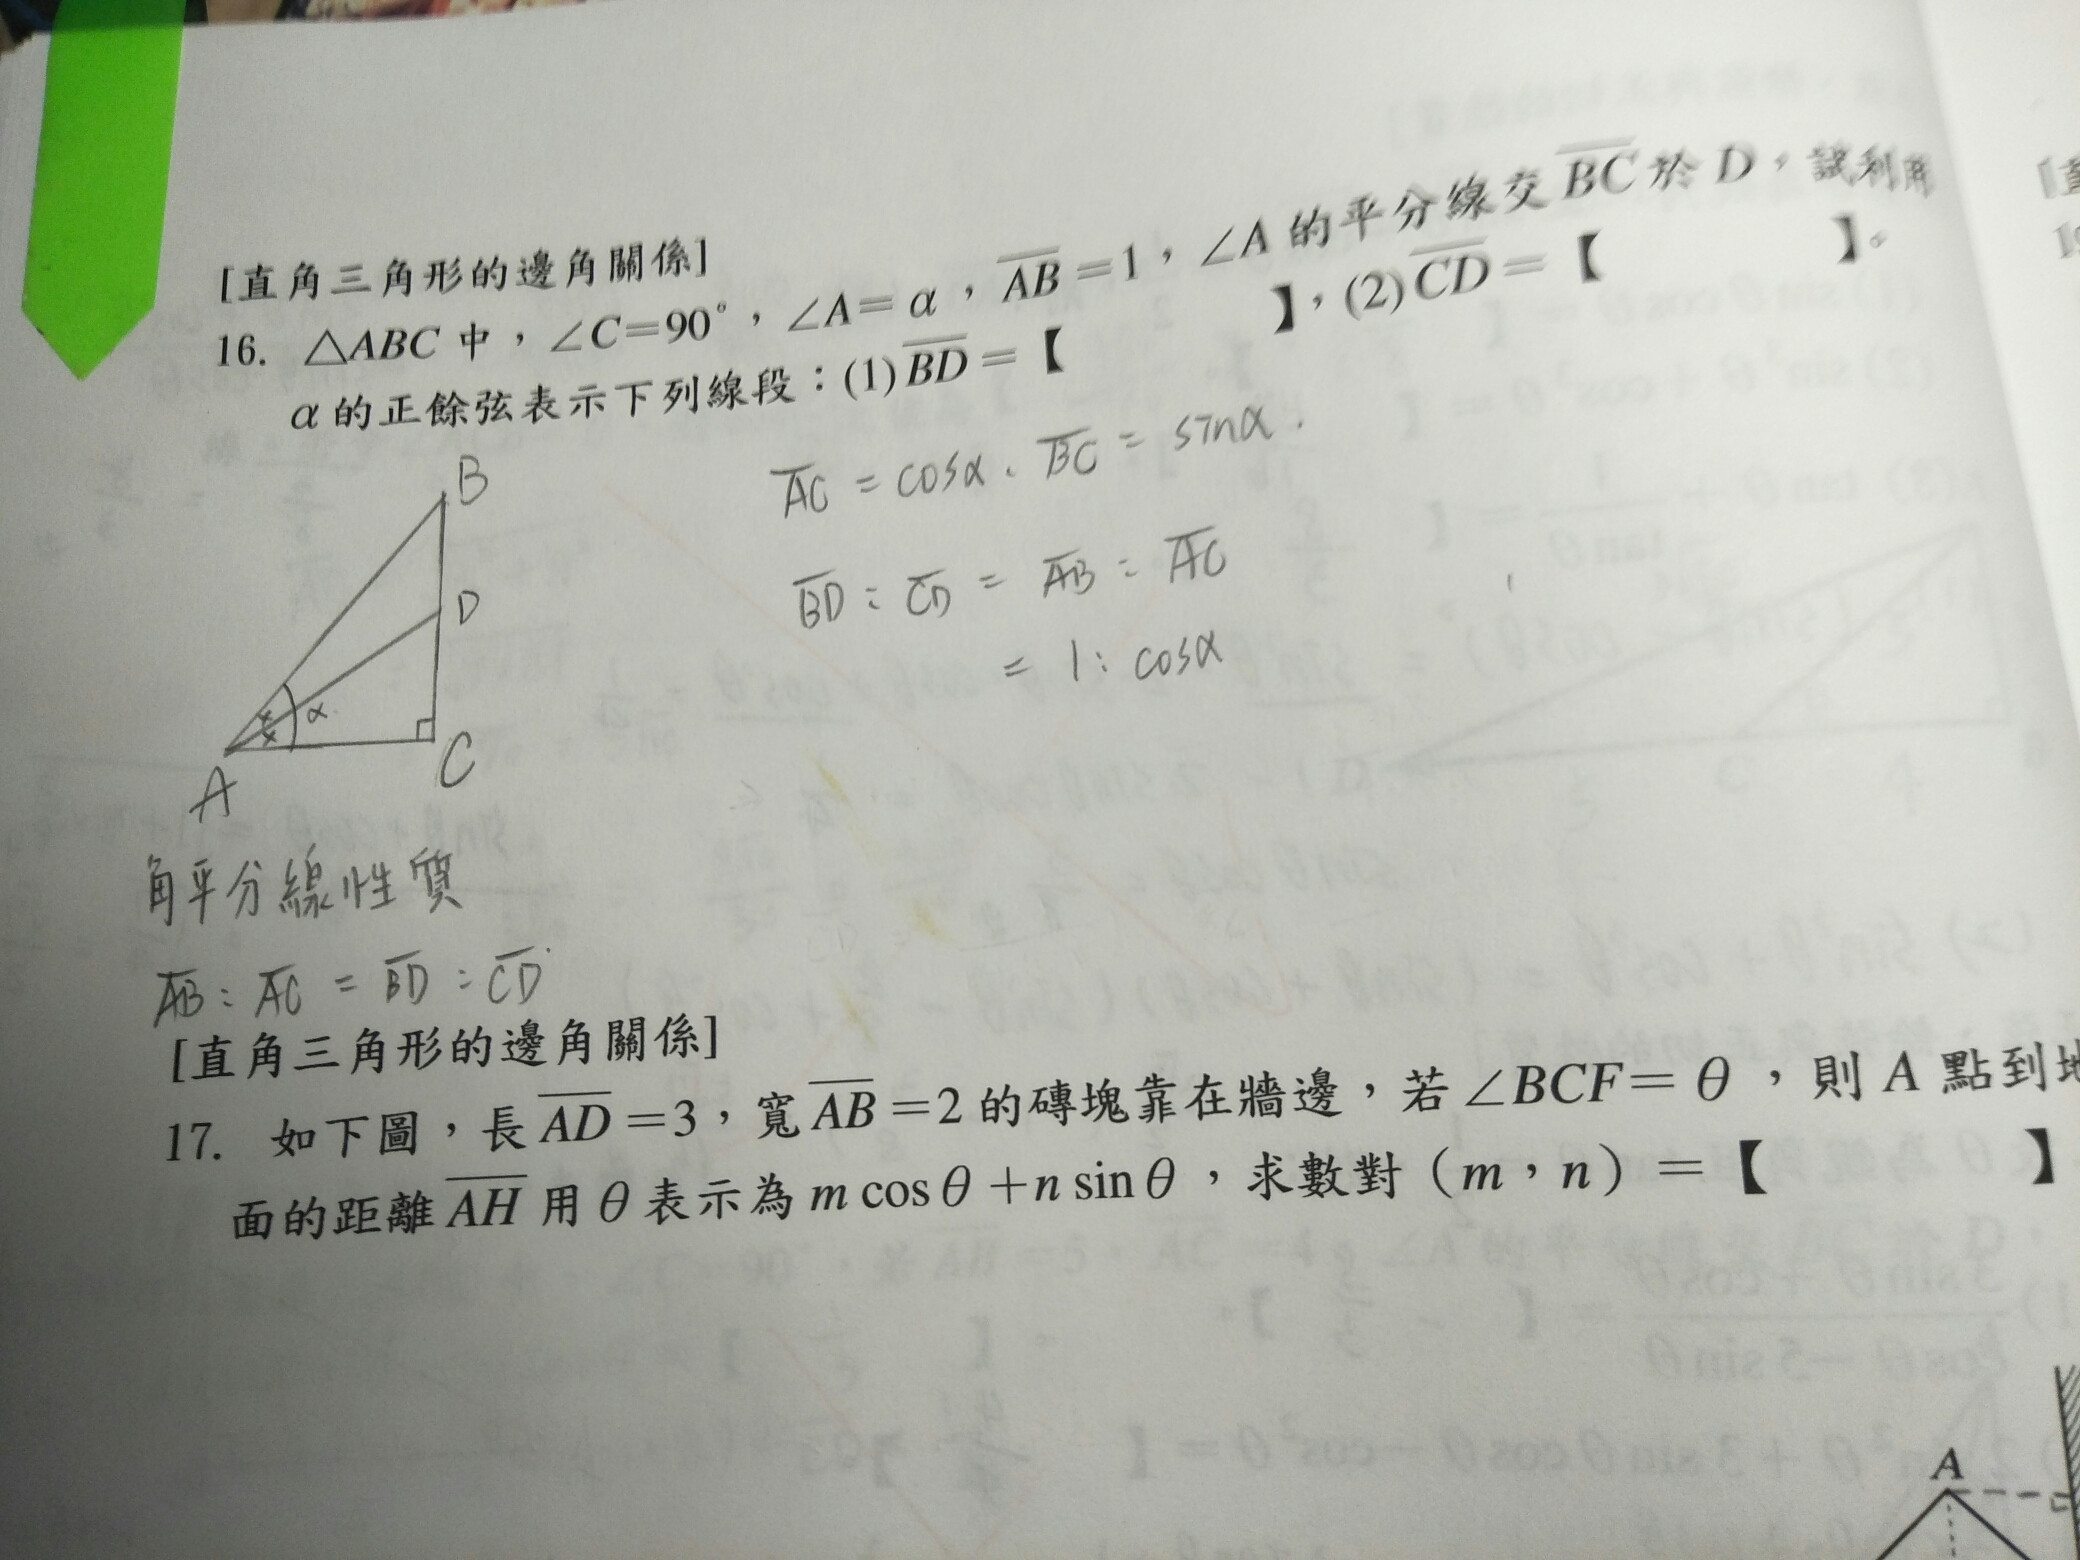 [直角三角形的邊角關係]
16. △ABC 中，∠C=90°，∠A=α，AB=1，∠A 的平分線交 BC 於 D，試利用
α 的正餘弦表示下列線段：(1) BD=【 】，(2) CD=【 】。
AC = cosα、BC = sinα.
BD : CD = AB : AC
= 1 : cosα
B
D
α
C
A
角平分線性質
AB : AC = BD : CD
[直角三角形的邊角關係]
17. 如下圖，長 AD=3，寬 AB=2 的磚塊靠在牆邊，若 ∠BCF=θ，則 A 點到地
面的距離 AH 用 θ 表示為 m cosθ+n sinθ，求數對（m，n）=【 】
A